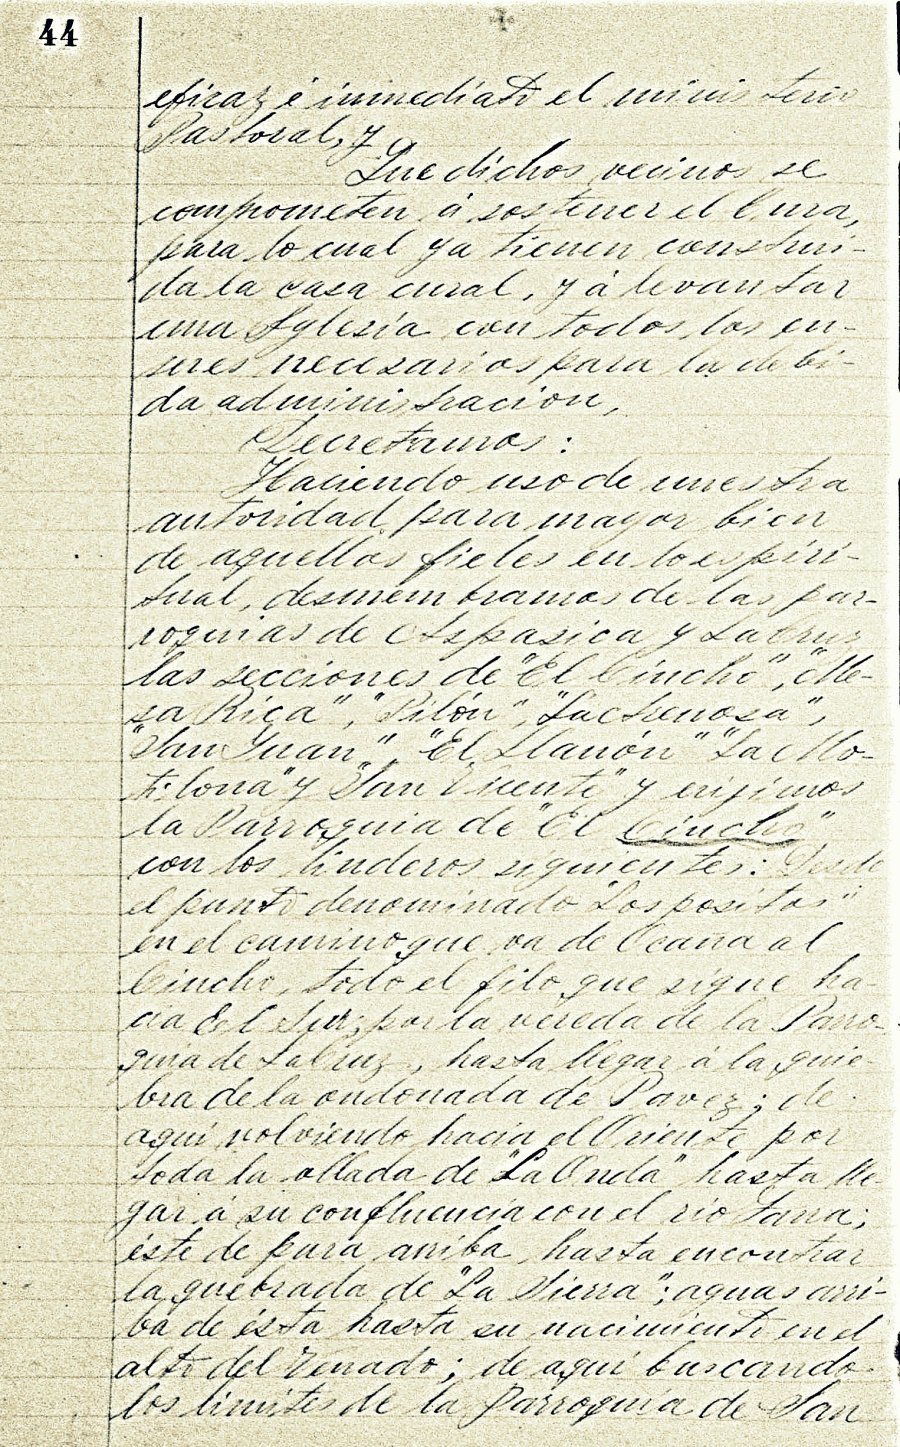 44
eficaz é inmediato el ministerio
Pastoral, y
Que dichos vecinos se
comprometen á sostener el Cura,
para lo cual ya tienen construi-
da la casa cural, y á levantar
una Iglesia con todos los en-
seres necesarios para la debi-
da administracion,
Decretamos:
Haciendo uso de nuestra
autoridad para mayor bien
de aquellos fieles en lo espiri-
tual, desmembramos de las par-
roquias de Aspasica y La Cruz
las secciones de "El Cincho", "Me-
sa Rica", "Pilón", "La Arenosa",
"San Juan", "El Llanón" "La Mo-
tilona" y "San Vicente" y erijimos
la Parroquia de "El Cincho"
con los linderos siguientes: Desde
el punto denominado "Los positos"
en el camino que va de Ocaña al
Cincho, todo el filo que sigue ha-
cia El Sur, por la vereda de la Parro-
quia de La Cruz, hasta llegar á la quie-
bra de la ondonada de Pavez; de
aquí volviendo hacia el Oriente por
toda la ollada de "La Onda" hasta lle-
gar á su confluencia con el rio Tarra;
éste de para arriba hasta encontrar
la quebrada de "La Sierra"; aguas arri-
ba de ésta hasta su nacimiento en el
alto del Venado; de aquí buscando
los limites de la Parroquia de San